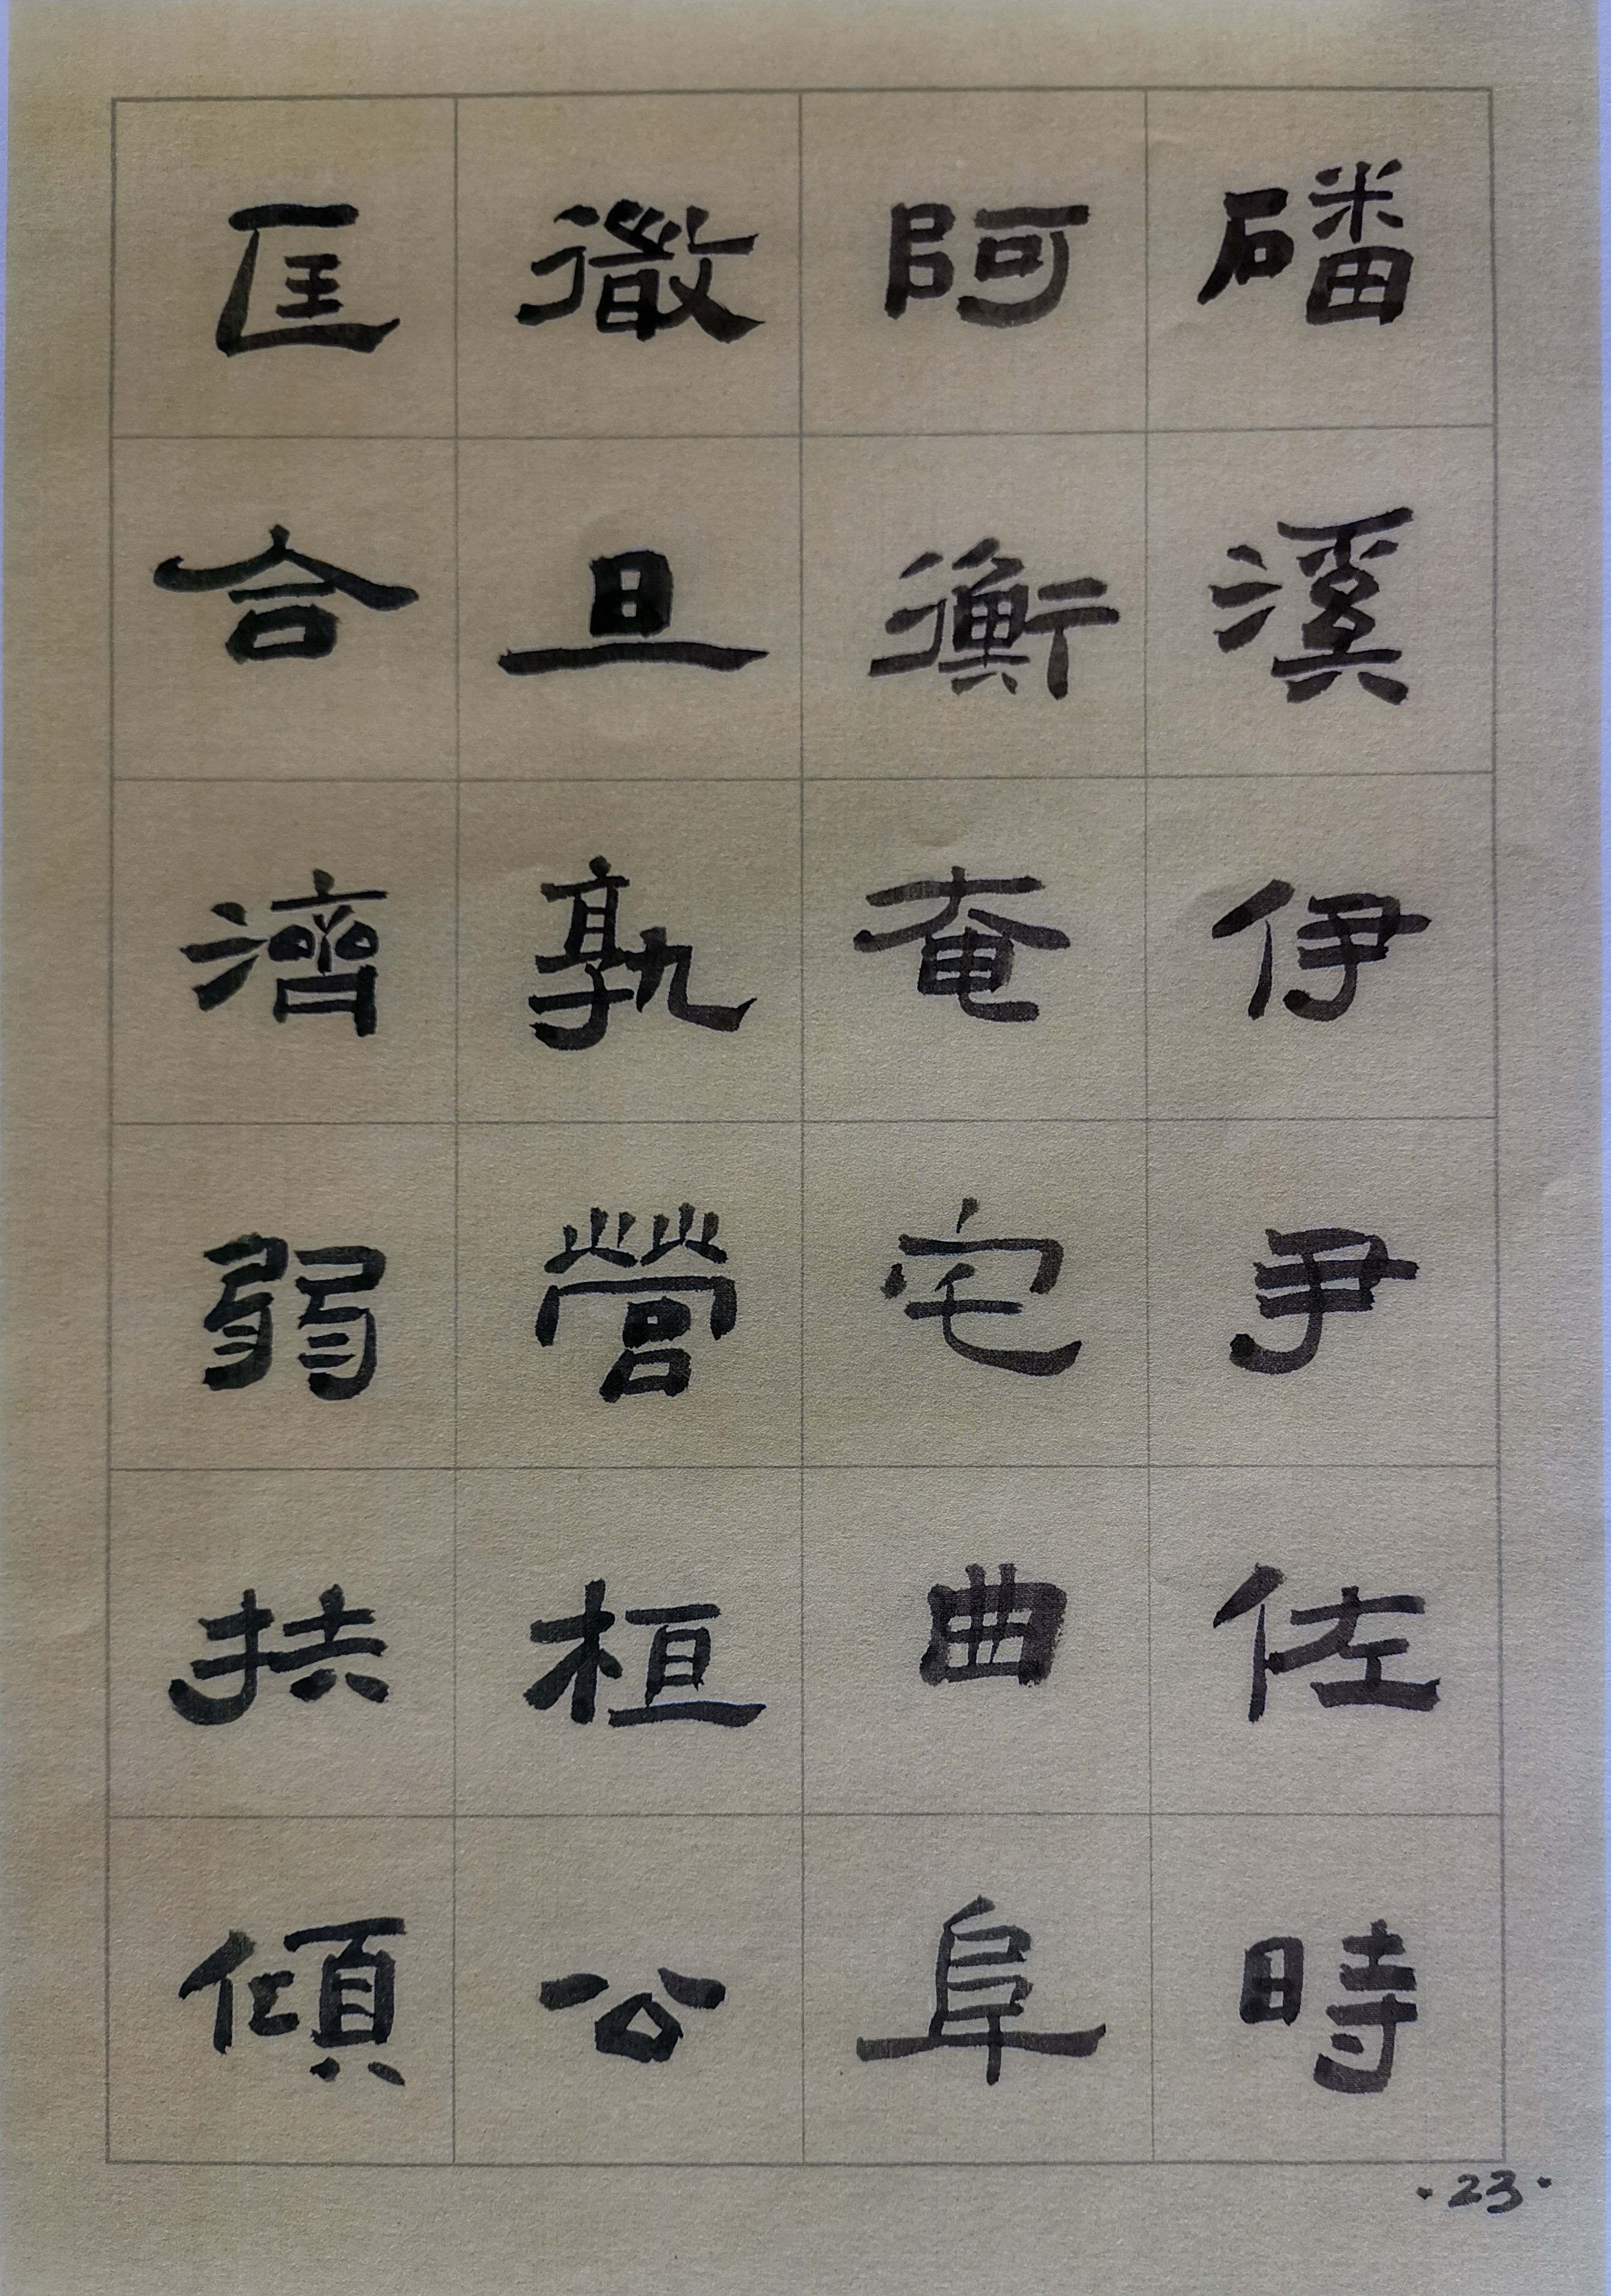 磻溪伊尹佐時
阿衡奄宅曲阜
徽旦孰營桓公
匡合濟弱扶傾
·23·